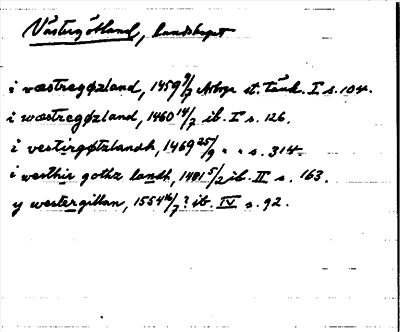 Västergötland, landskapet
i væstregøzland, 1459 9/7 Arboga st. Tänk. I s. 104.
i wæstregøzland, 1460 14/7 ib. I s. 126.
i vestirgøtzlandh, 1469 25/9 " " s. 314.
i westhir gotha landh, 1481 5/2 ib. II s. 163.
y westergillan, 1554 16/7? ib. IV s. 92.